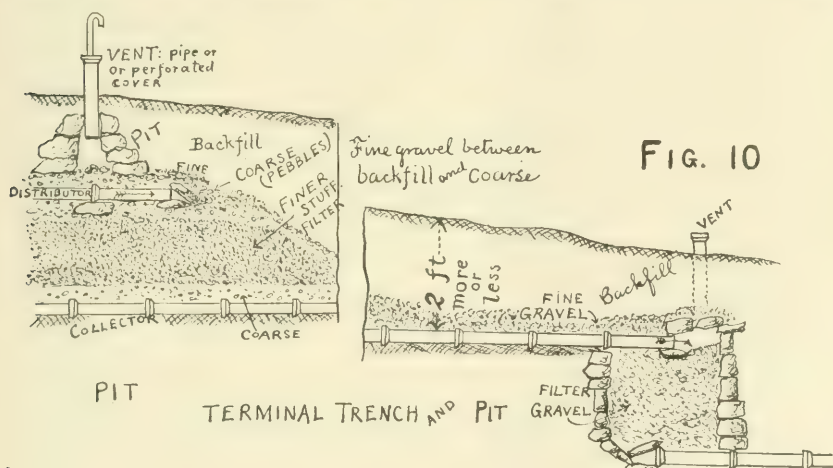 VENT: pipe or
or perforated
COVER
PIT
Backfill
FINE
COARSE
(PEBBLES)
DISTRIBUTOR
FINER
STUFF
FILTER
COLLECTOR
COARSE
PIT
Fine gravel between
backfill and Coarse
FIG. 10
VENT
2 ft
more
or
less
Backfill
FINE
GRAVEL
FILTER
GRAVEL
TERMINAL TRENCH AND PIT